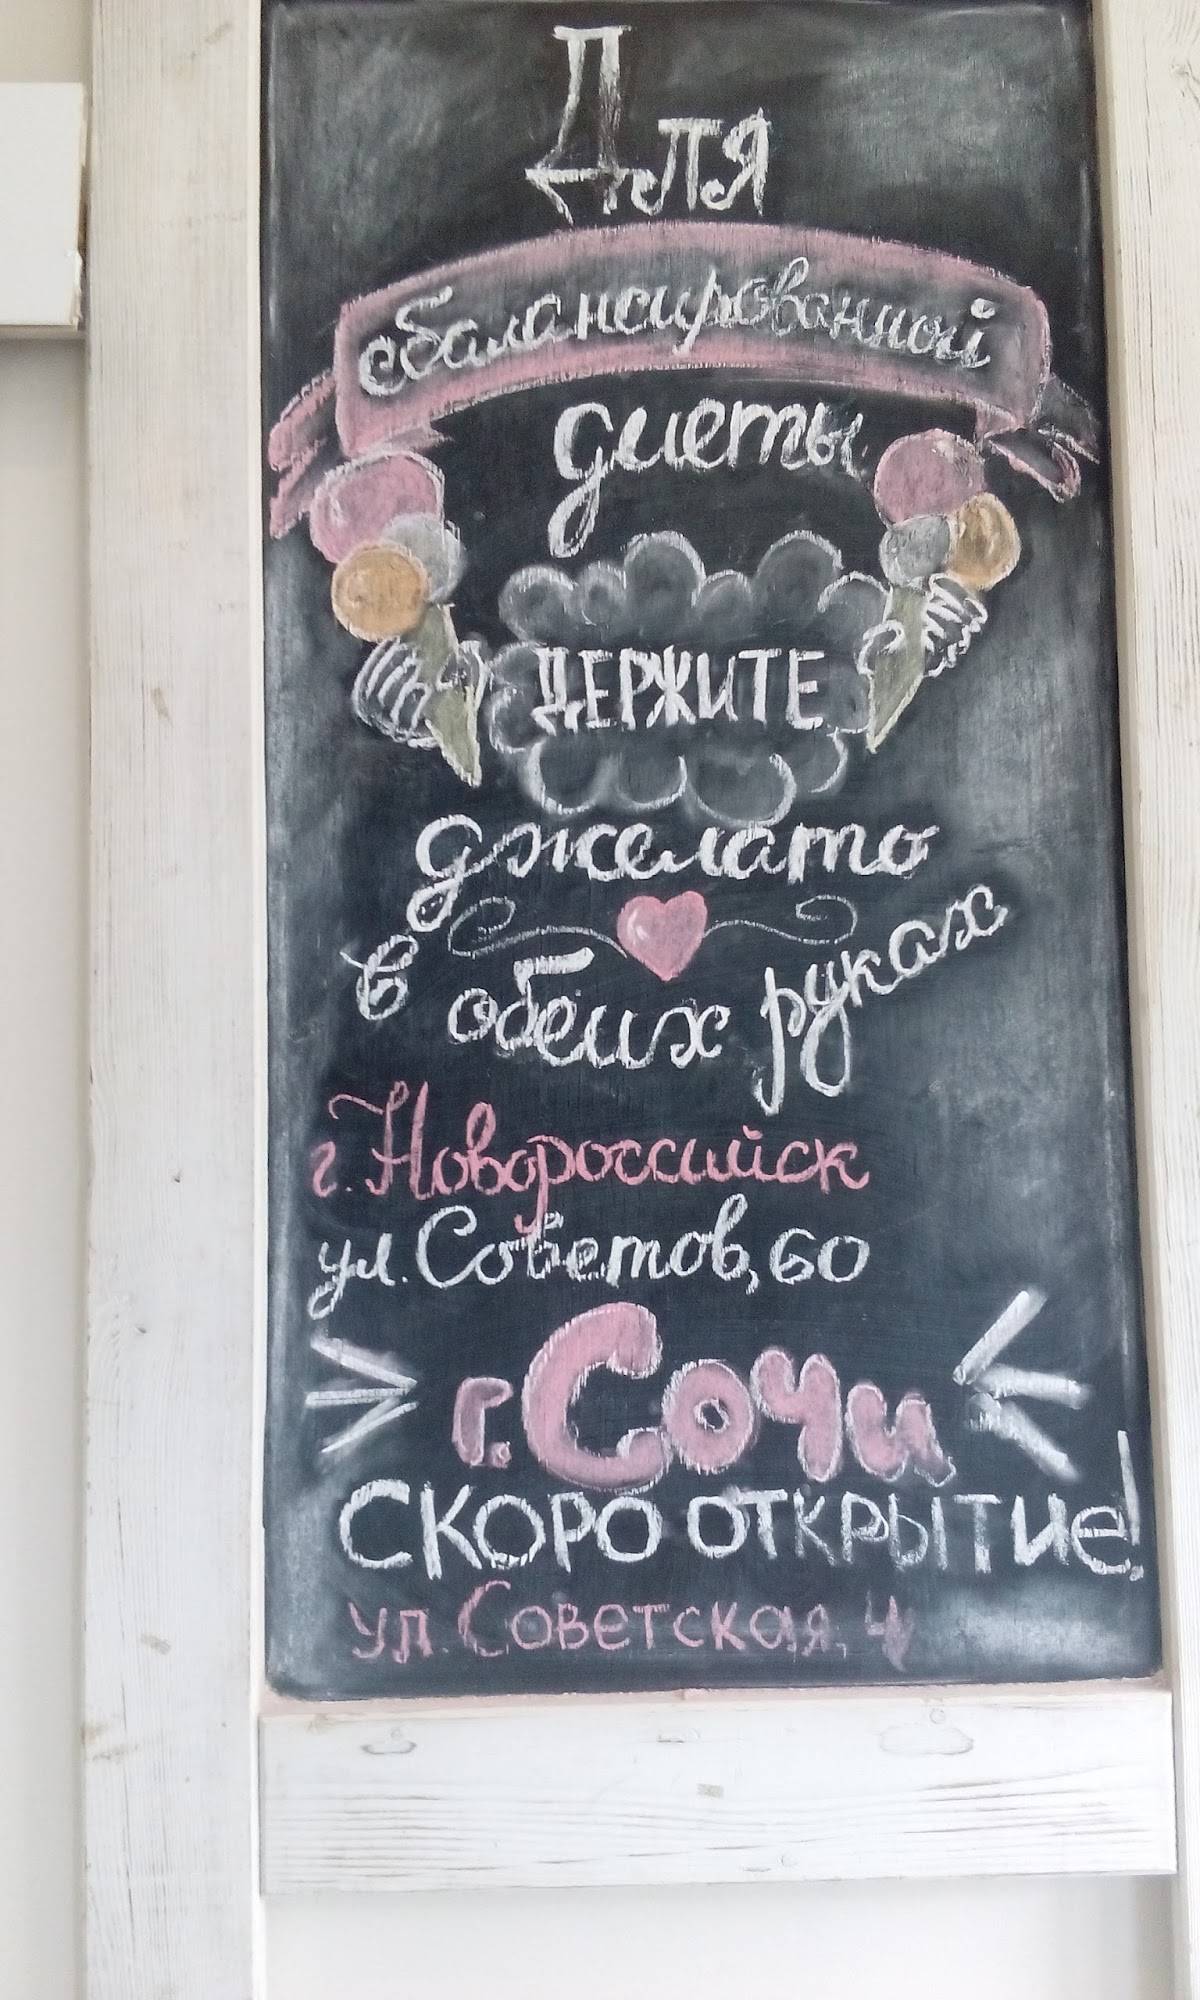 Для
сбалансированной
диеты
ДЕРЖИТЕ
джелато
в обеих руках
г. Новороссийск
ул. Советов, 60
г. Сочи
СКОРО ОТКРЫТИЕ!
ул. Советская, 4